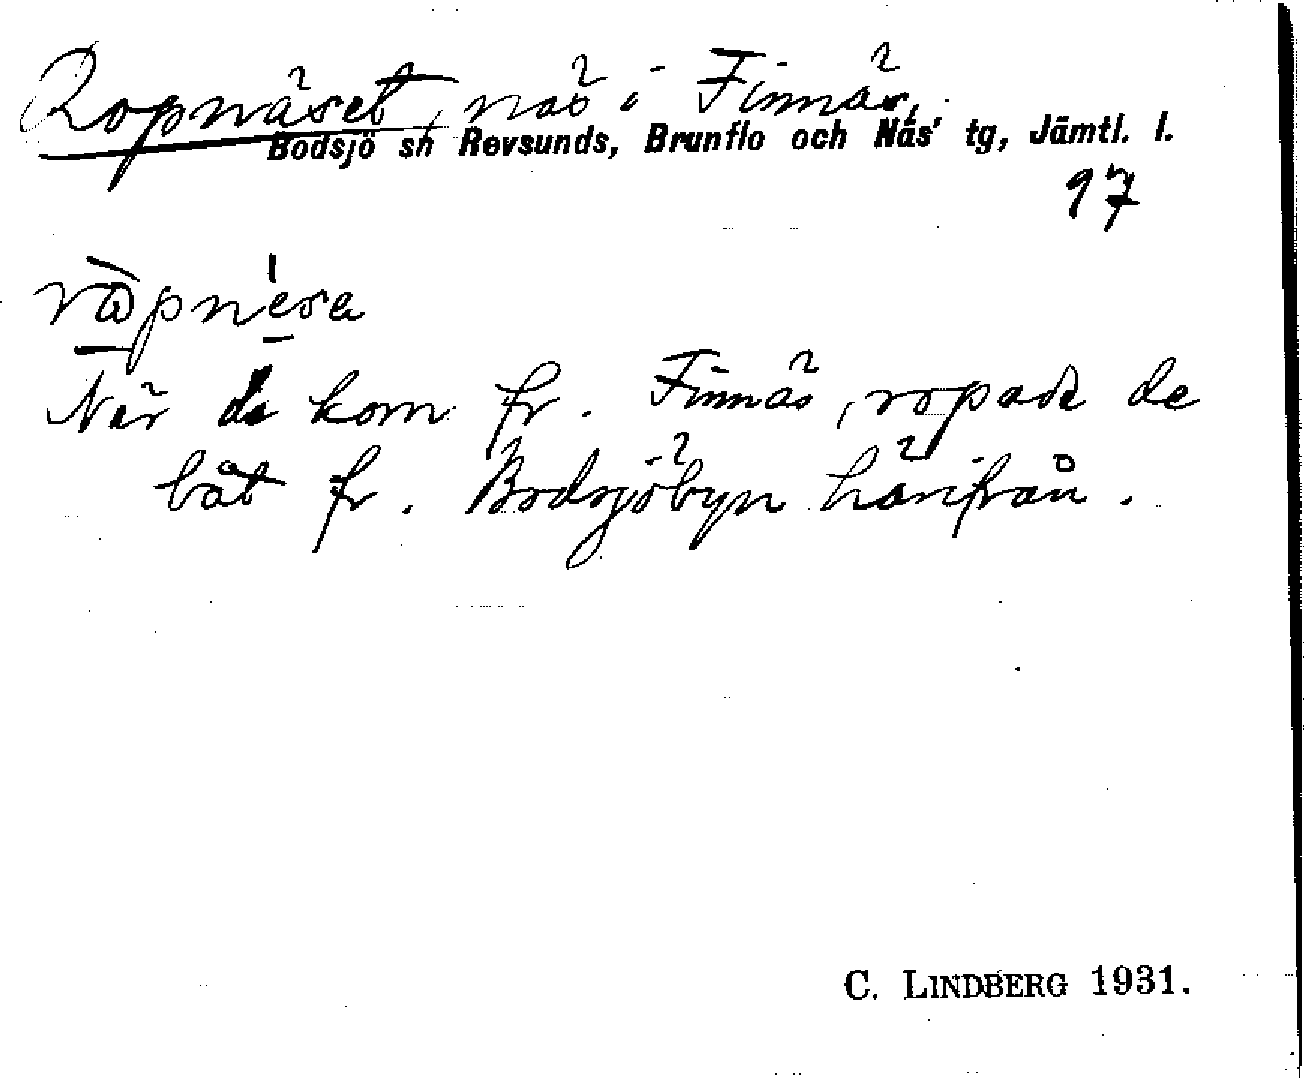 Ropnäset, näs i Finnäs,
Bodsjö sn Revsunds, Brunflo och Näs' tg, Jämtl. l.
97
När de kom fr. Finnäs, ropade de
båt fr. Bodsjöbyn härifrån.
C. LINDBERG 1931.